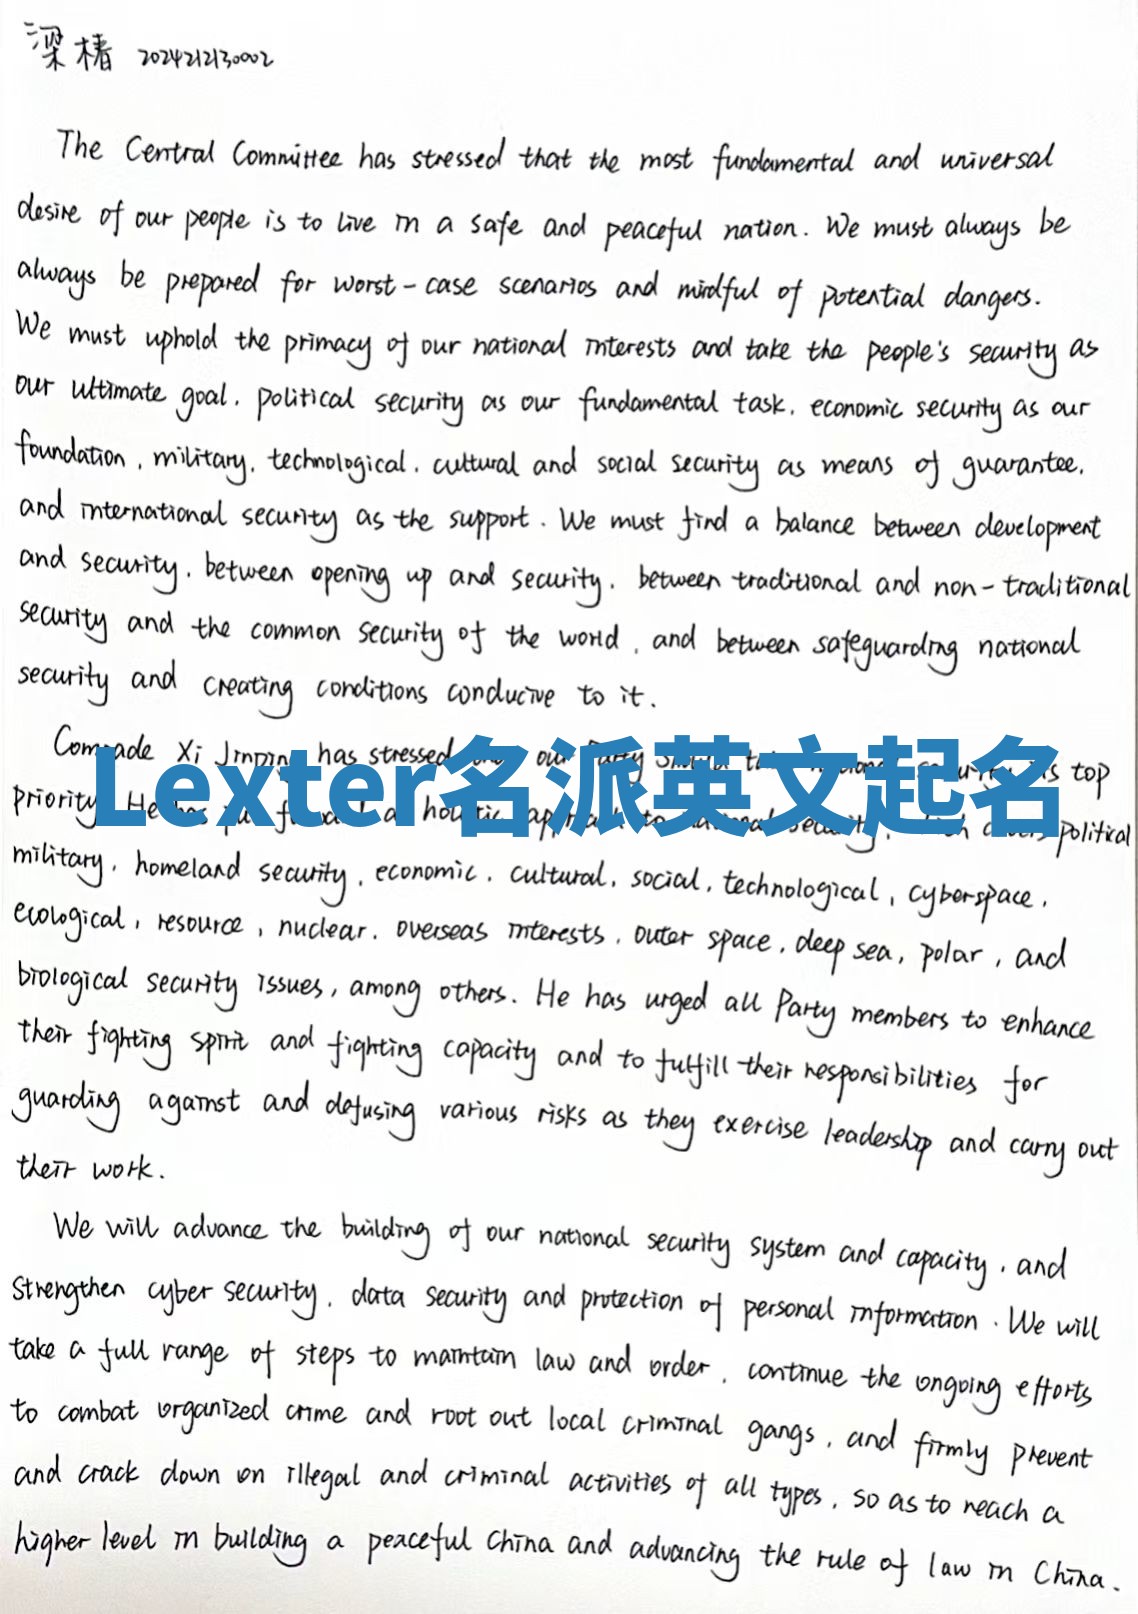 梁椿 2024212130002
The Central Committee has stressed that the most fundamental and universal
desire of our people is to live in a safe and peaceful nation. We must always be
always be prepared for worst-case scenarios and mindful of potential dangers.
We must uphold the primacy of our national interests and take the people's security as
our ultimate goal, political security as our fundamental task, economic security as our
foundation, military, technological, cultural and social security as means of guarantee,
and international security as the support. We must find a balance between development
and security, between opening up and security, between traditional and non-traditional
security and the common security of the world, and between safeguarding national
security and creating conditions conducive to it.
Comrade Xi Jinping has stressed our Party should security its top
priority. He has a holistic to national security, political
Lexter名派英文起名
military, homeland security, economic, cultural, social, technological, cyberspace,
ecological, resource, nuclear, overseas interests, outer space, deep sea, polar, and
biological security issues, among others. He has urged all Party members to enhance
their fighting spirit and fighting capacity and to fulfill their responsibilities for
guarding against and defusing various risks as they exercise leadership and carry out
their work.
We will advance the building of our national security system and capacity, and
strengthen cyber security, data security and protection of personal information. We will
take a full range of steps to maintain law and order, continue the ongoing efforts
to combat organized crime and root out local criminal gangs, and firmly prevent
and crack down on illegal and criminal activities of all types, so as to reach a
higher level in building a peaceful China and advancing the rule of law in China.